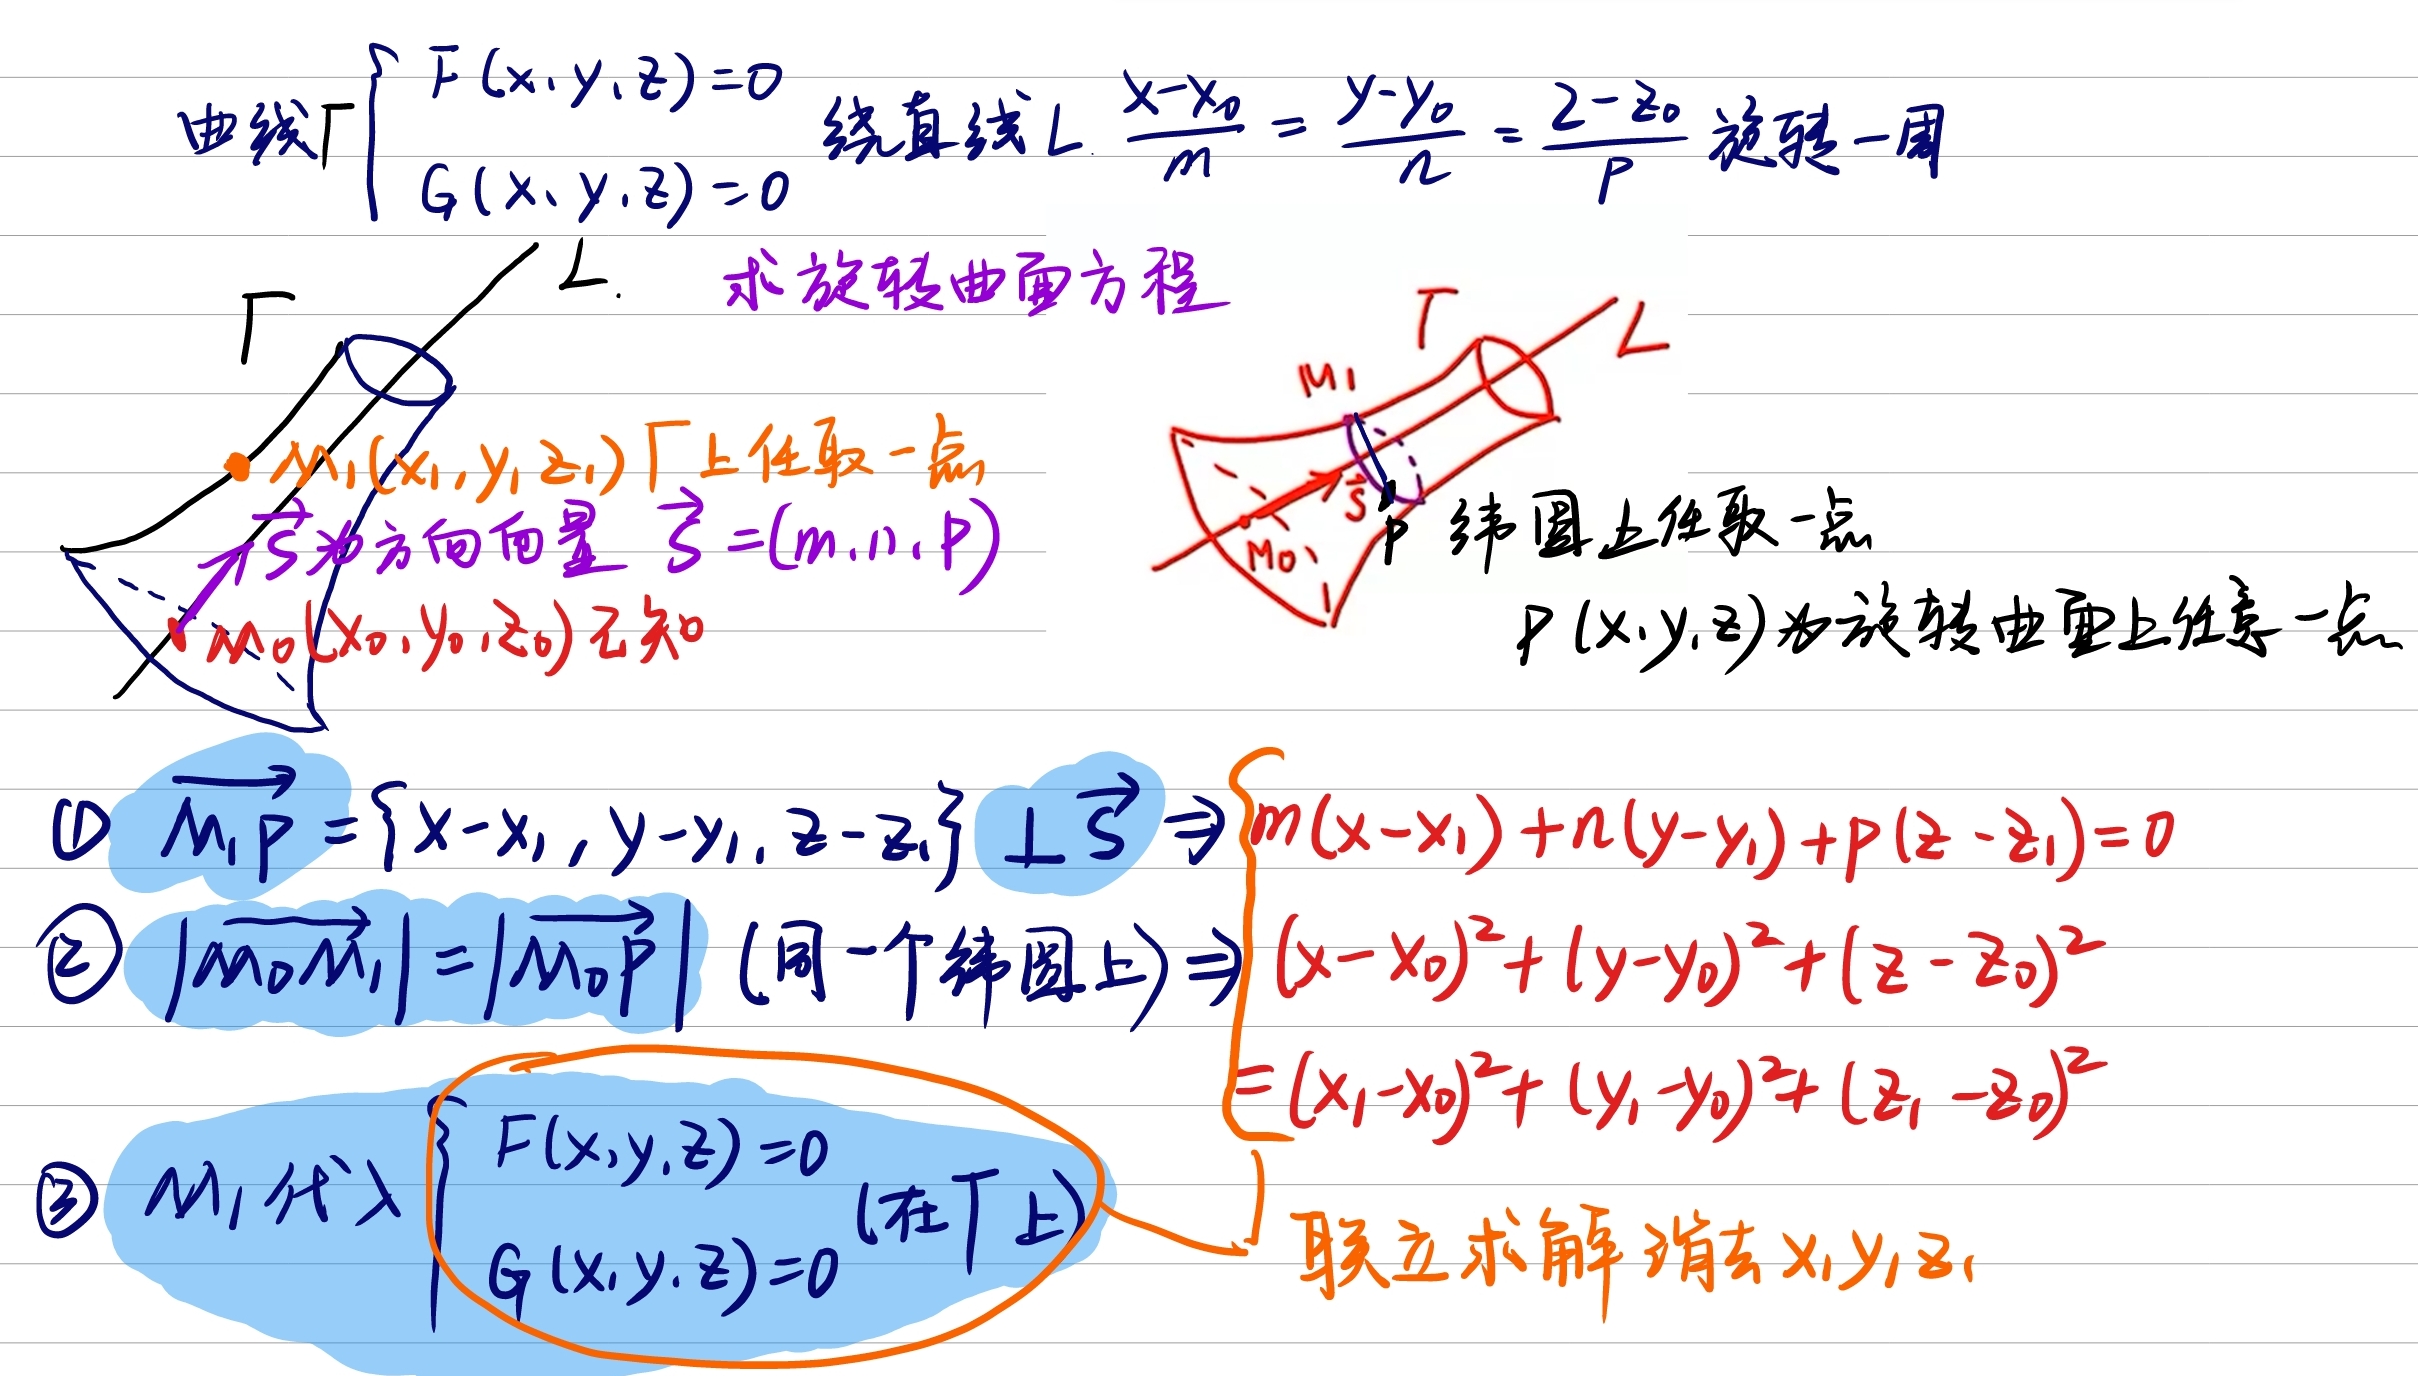 曲线Γ { F(x,y,z)=0
G(x,y,z)=0
绕直线L. (x-x₀)/m = (y-y₀)/n = (z-z₀)/p 旋转一周
求旋转曲面方程
Γ
L.
M₁(x₁,y₁,z₁) Γ上任取一点
S⃗为方向向量 S⃗=(m,n,p)
M₀(x₀,y₀,z₀)已知
Γ
L
M₁
S⃗
M₀
P 纬圆上任取一点
P(x,y,z)为旋转曲面上任意一点
① M₁P⃗={x-x₁,y-y₁,z-z₁}⊥S⃗ ⇒ m(x-x₁)+n(y-y₁)+p(z-z₁)=0
② |M₀M₁⃗|=|M₀P⃗| (同一个纬圆上) ⇒ (x-x₀)²+(y-y₀)²+(z-z₀)²
=(x₁-x₀)²+(y₁-y₀)²+(z₁-z₀)²
③ M₁代入 { F(x,y,z)=0
G(x,y,z)=0
(在Γ上)
联立求解 消去x₁y₁z₁